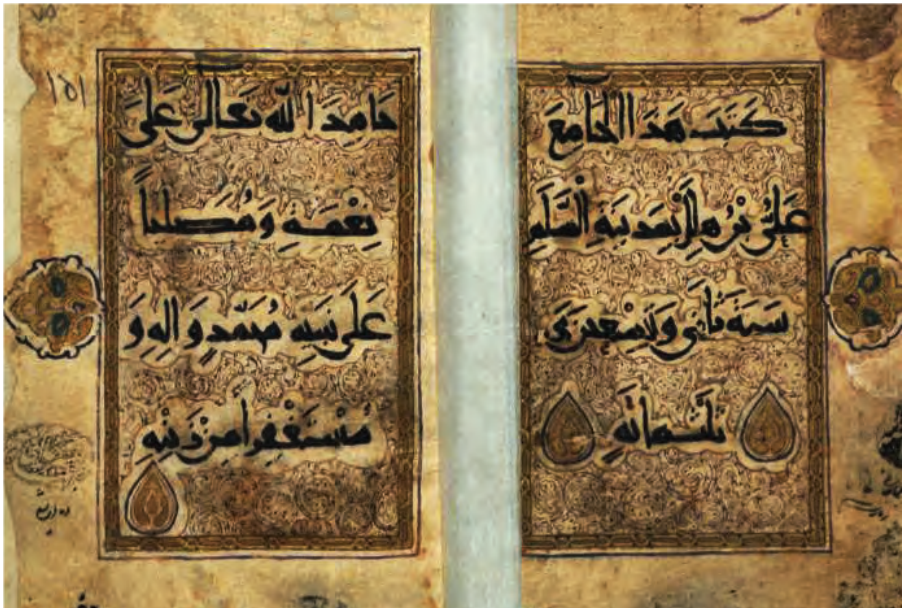 كَتَبَ هَذَا الجَامِعَ
عَلِيُّ بْنُ هِلَالٍ بِمَدِينَةِ السَّلَمِ
سَنَةَ ثَانِى وَتِسْعِينَ وَ
ثَلَثَمِائَةٍ
١٥١
حَامِدًا لله تَعَالَى عَلَى
نِعَمِهِ وَمُصَلِّيًا
عَلَى نَبِيِّهِ مُحَمَّدٍ وَالِهِ وَ
مُسْتَغْفِرًا مِنْ ذَنْبِهِ